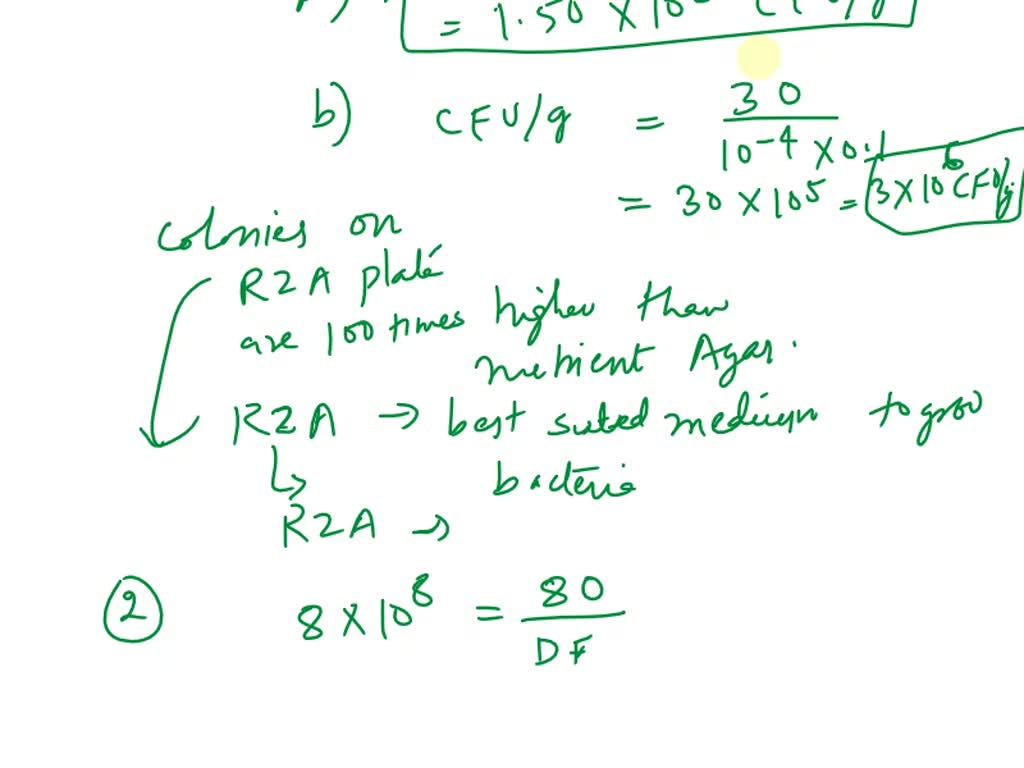 = 1.50 × 10
b) CFU/g = 30 / 10⁻⁴ × 0.1
= 30 × 10⁵ = 3 × 10⁶ CFU/g
colonies on
R2A plate
are 100 times higher than
nutrient Agar.
R2A → best suited medium to grow
bacteria
R2A →
② 8 × 10⁸ = 80 / DF